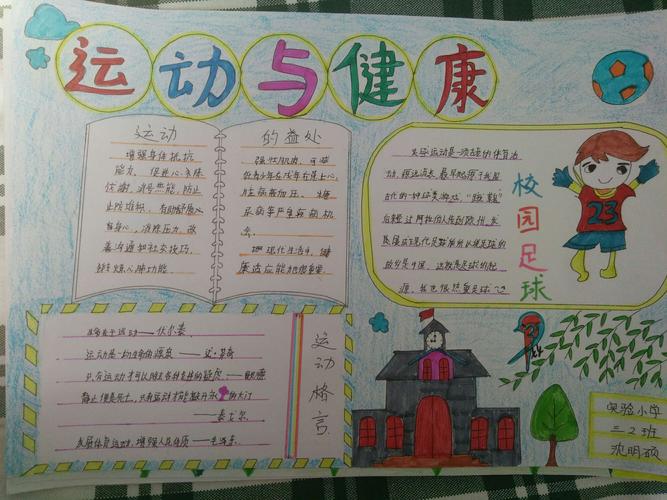 运动与健康
运动
的益处
增强身体抵抗
能力、促进心
消耗热能,防止
脂肪堆积,有助舒展心
身心,消除压力,改
善沟通和社交技巧,
锻炼心肺功能。
强壮肌肉,可减
低青少年在成年后患上心
脏病
尿病等严重疾病机
会。
健
康适应能力很重要
足球运动是一项古老的体育活
动,源远流长,最早起源于我国
古代的一种球类游戏,“蹴鞠”
后经过阿拉伯人传到欧洲,发
展成现代足球。所以说足球的
故乡是中国,这就是足球的起
源,我也很热爱足球
校园足球
23
生命在于运动——伏尔泰
运动是一切生命的源泉——达·芬奇
只有运动才可以除去各种各样的疑虑——歌德
静止便是死亡,只有运动才能敲开永的大门
——泰戈尔
发展体育运动,增强人民体质——毛泽东
运动格言
实验小学
三2班
沈明硕